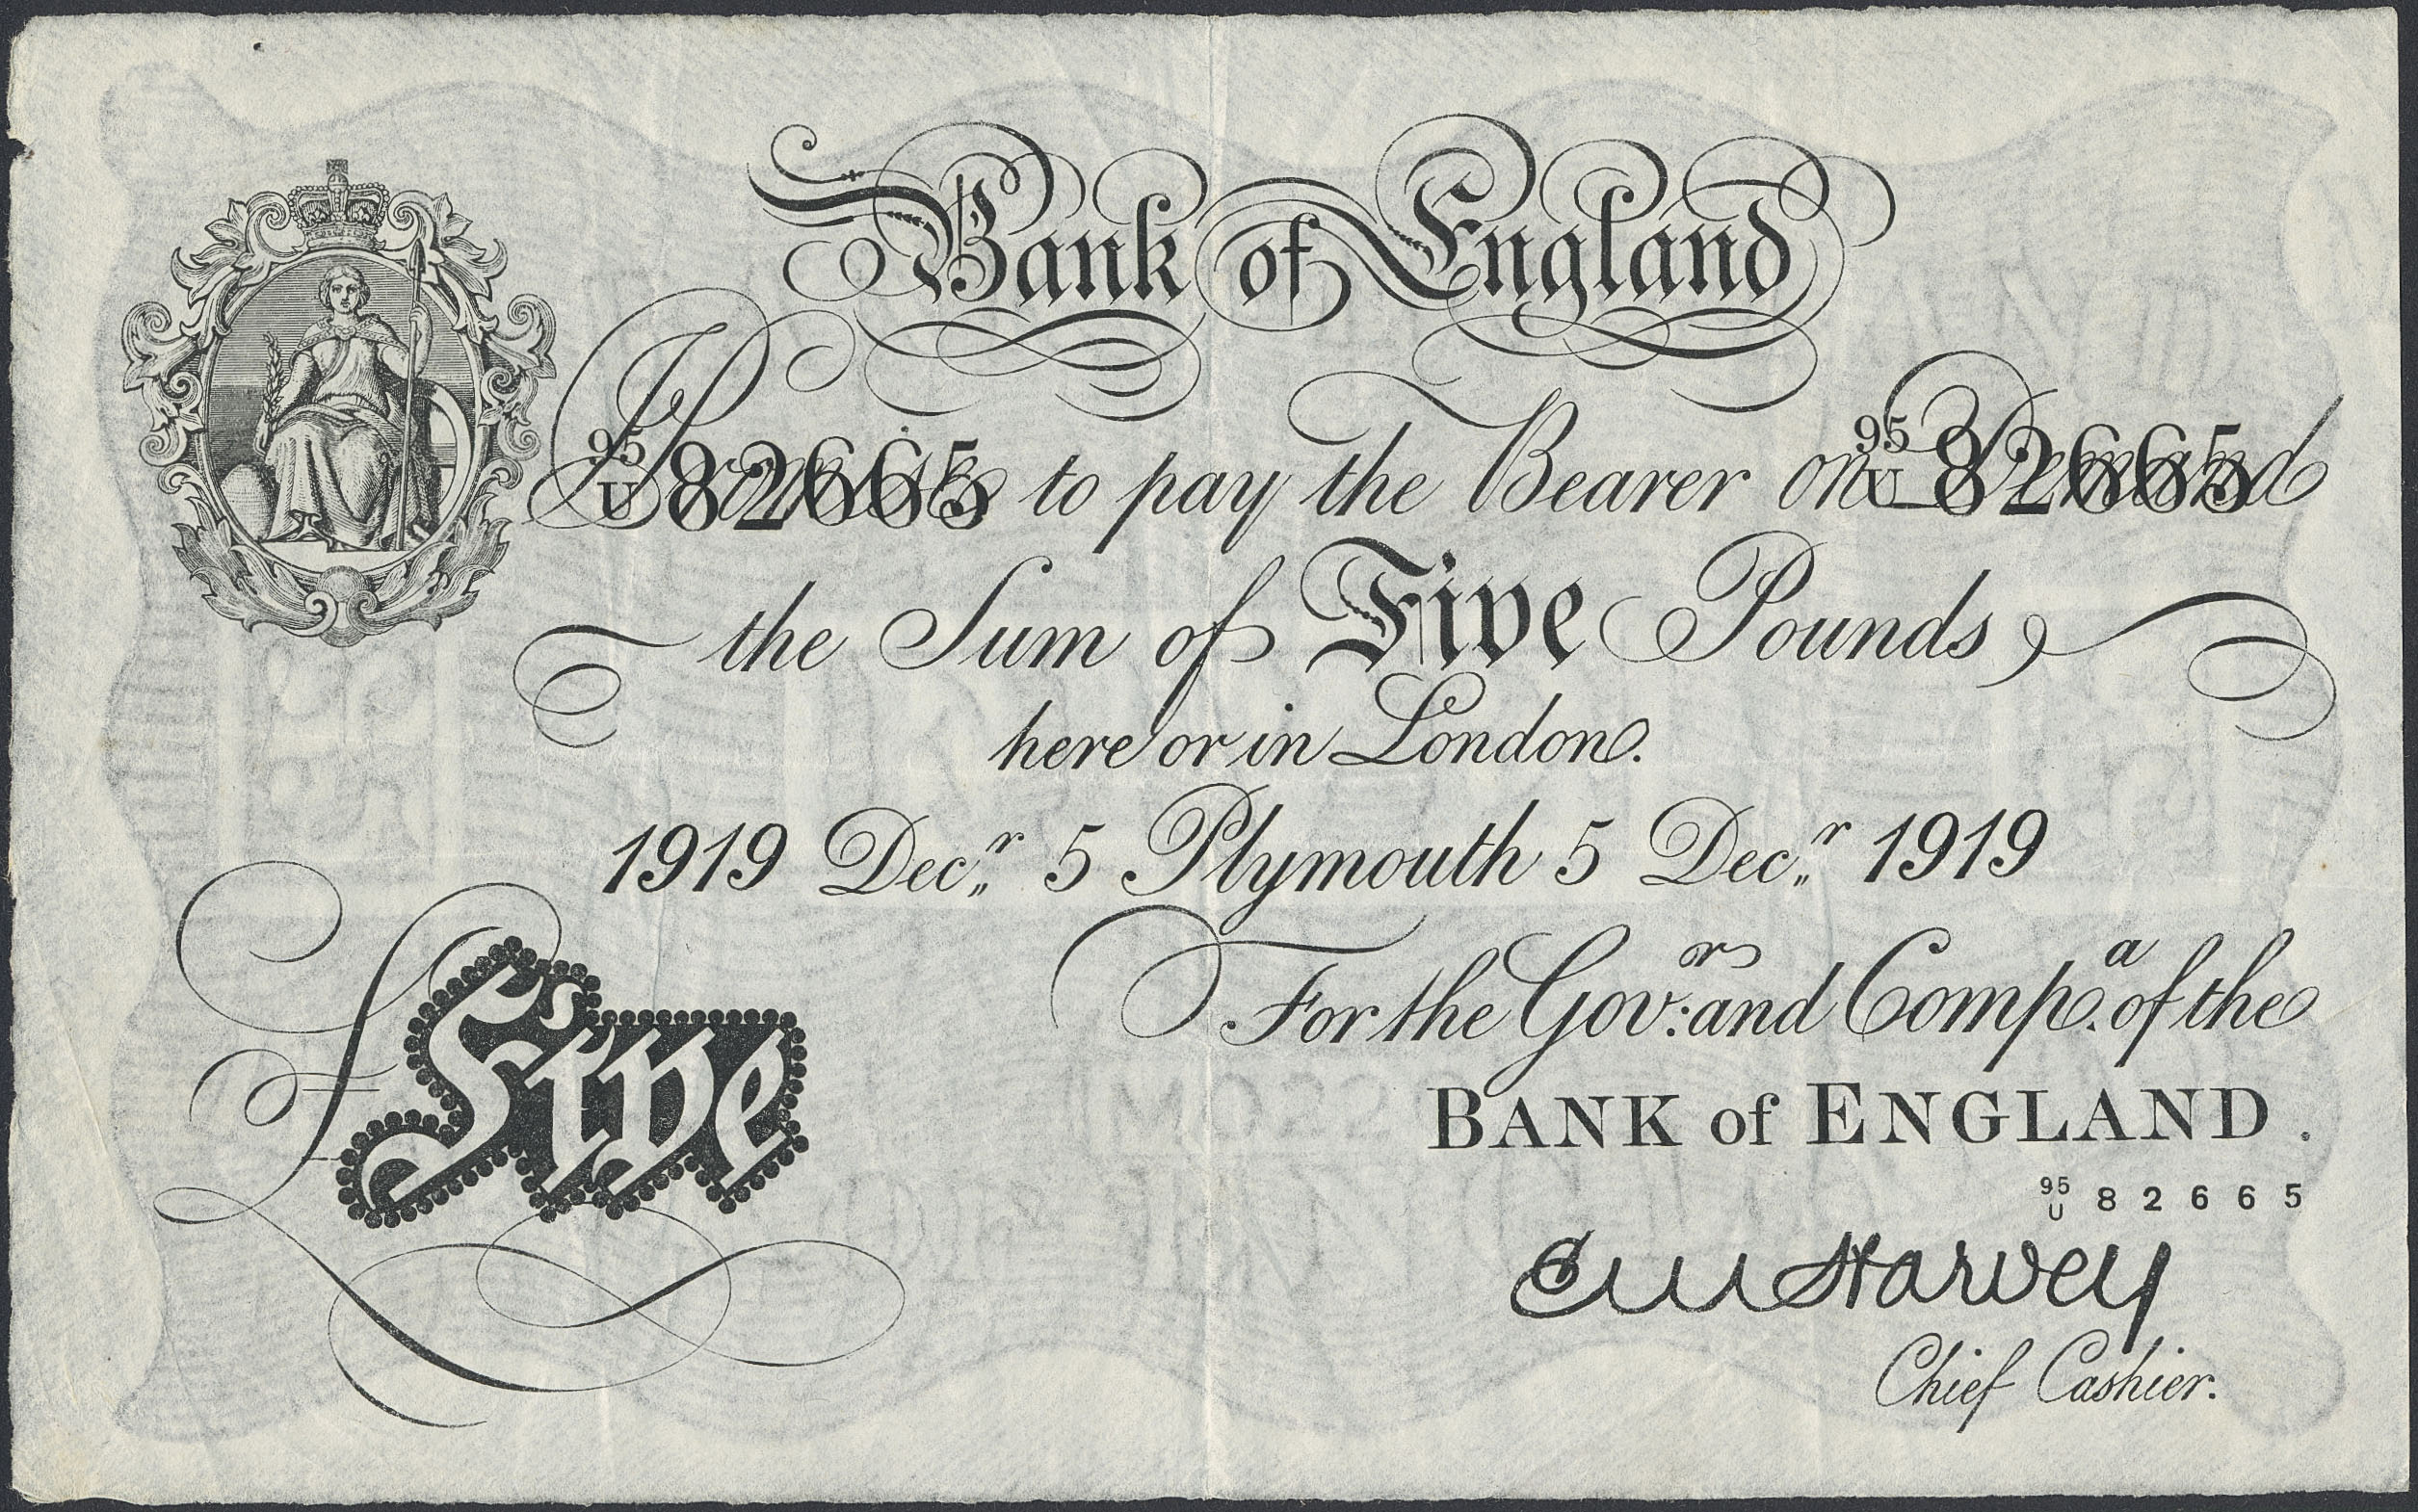 Bank of England
I Promise to pay the Bearer on Demand
95 U 82665 95 U 82665
the Sum of Five Pounds,
here or in London.
1919 Dec.r 5 Plymouth 5 Dec.r 1919
For the Gov:or and Comp.a of the
BANK of ENGLAND.
£ Five
95 U 82665
E M Harvey
Chief Cashier.